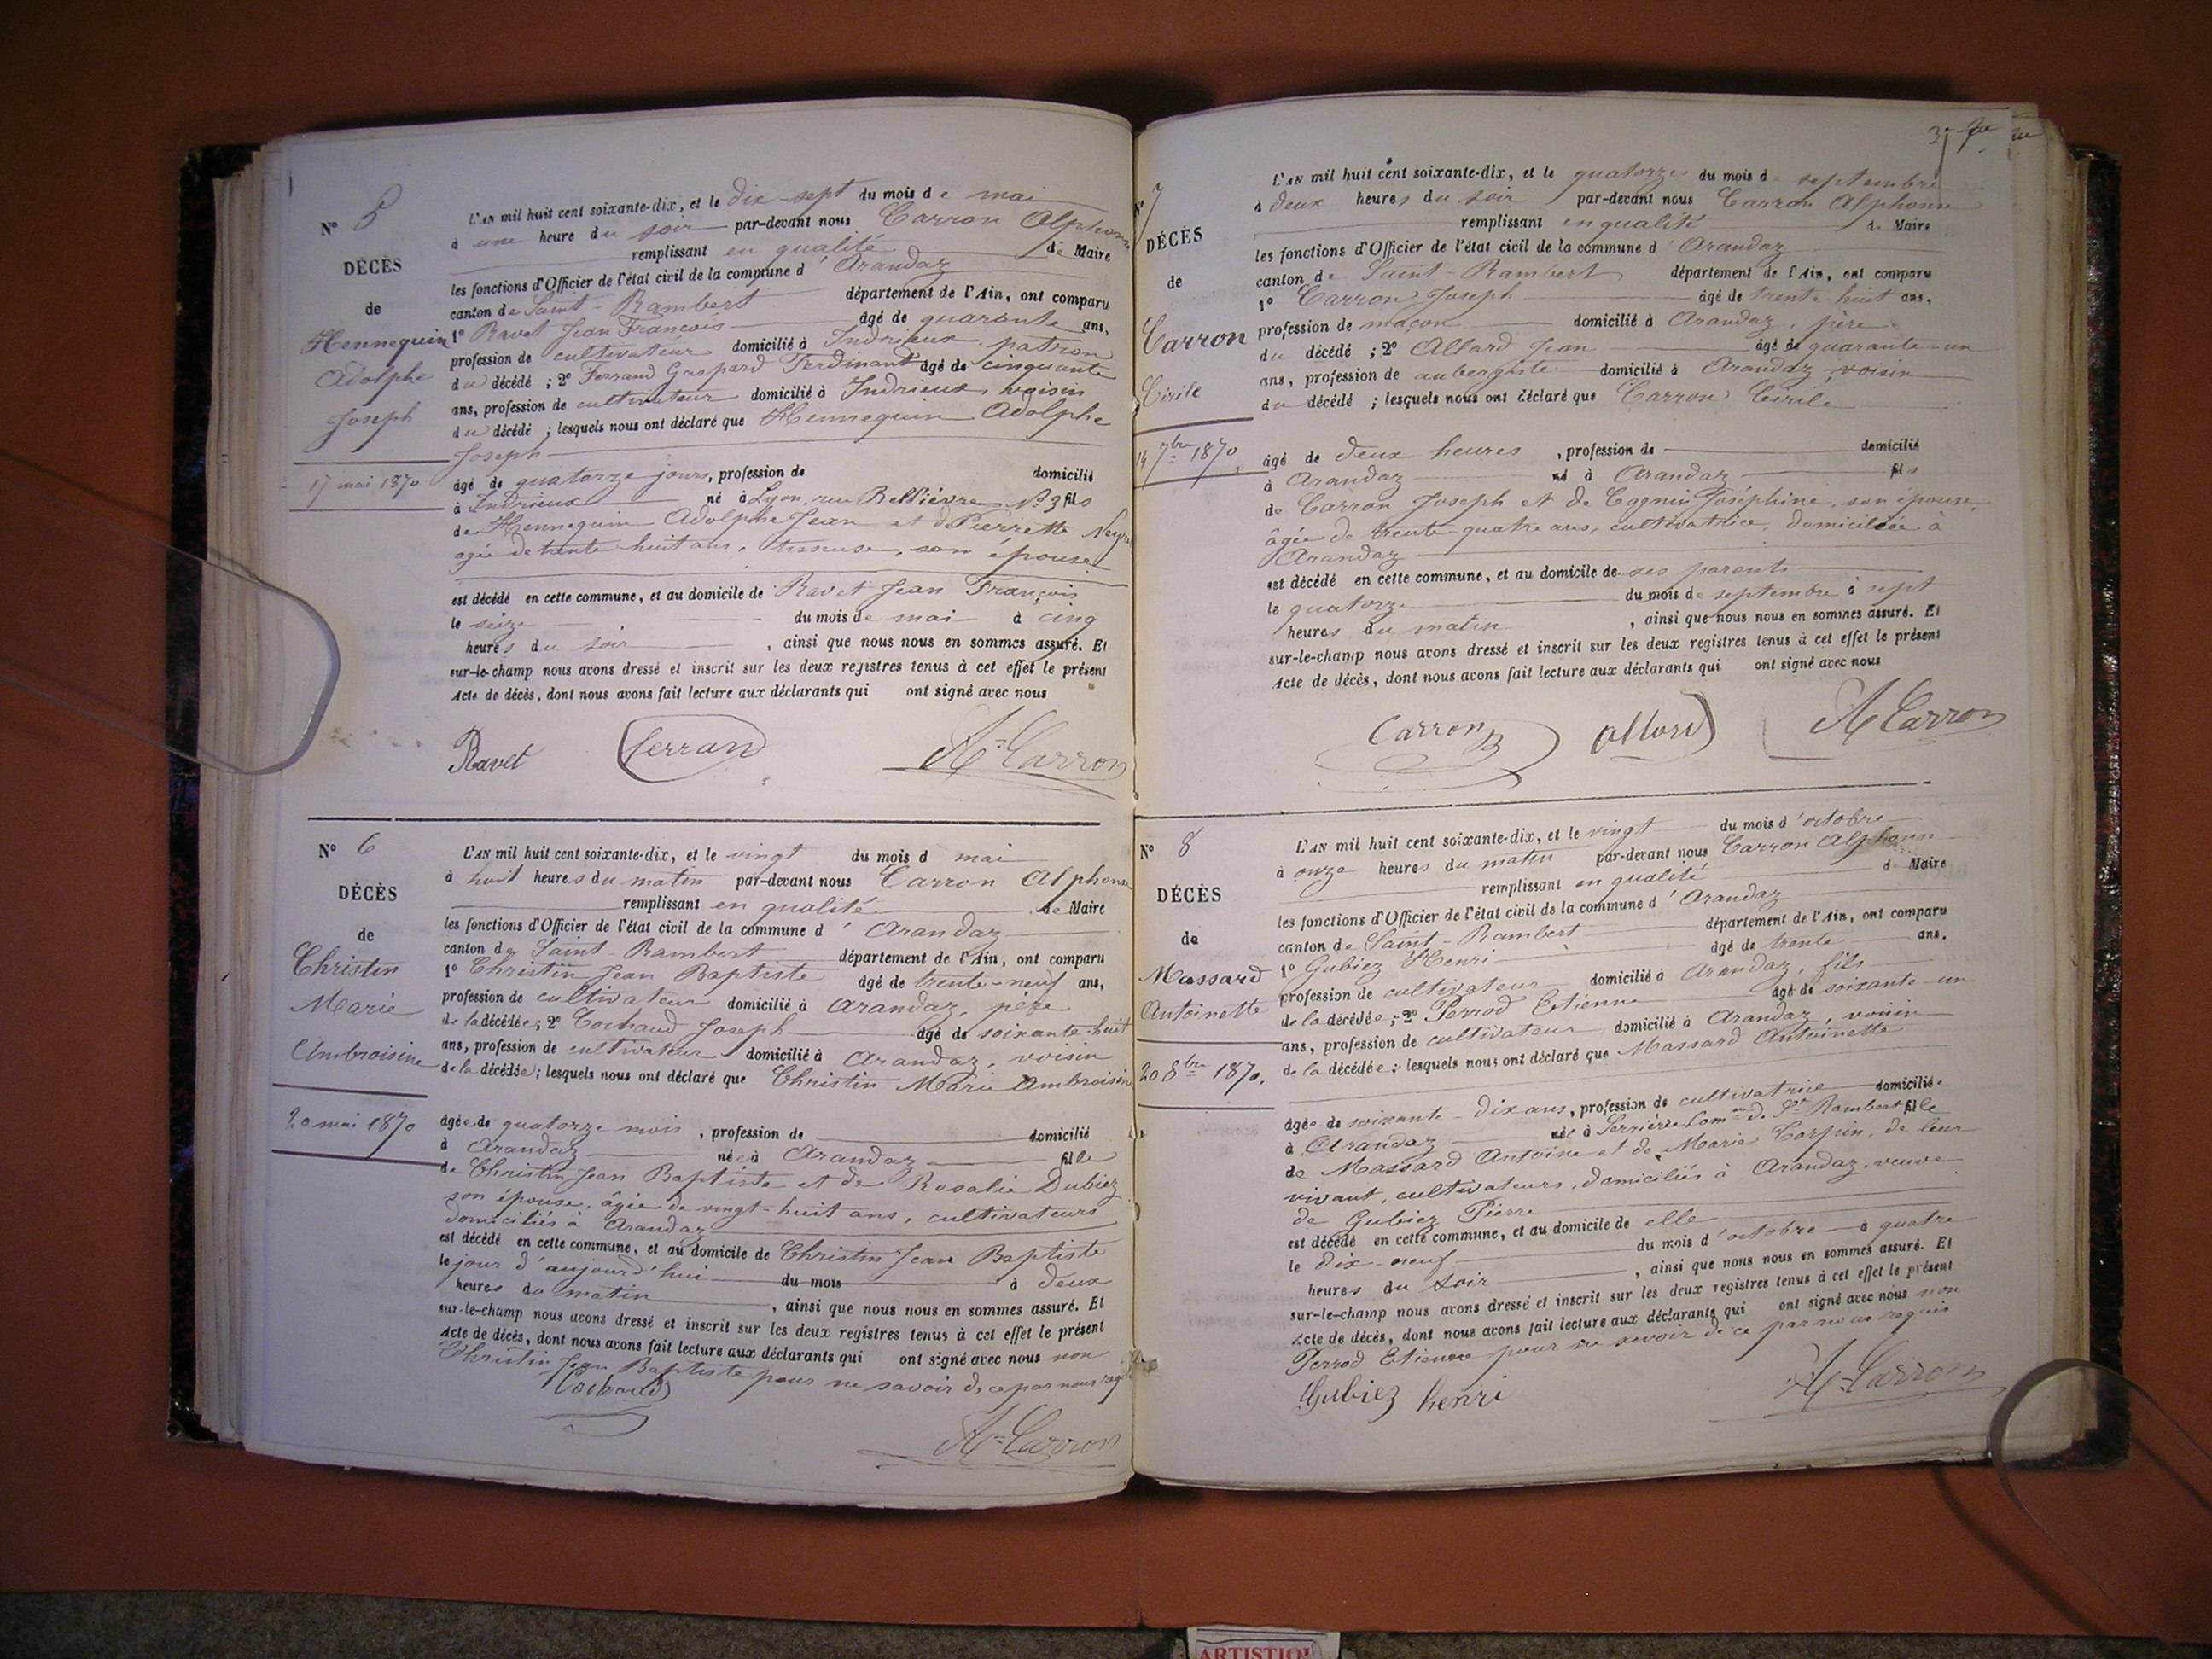 N° 5
DÉCÈS
de
Hennequin
Adolphe
Joseph
17 mai 1870
L'AN mil huit cent soixante-dix, et le dix-sept du mois de mai
à une heure du soir par-devant nous Carron Alphonse
remplissant en qualité de Maire
les fonctions d'Officier de l'état civil de la commune d'Arandaz
canton de Saint-Rambert département de l'Ain, ont comparu
1° Ravet Jean François âgé de quarante ans,
profession de cultivateur domicilié à Indrieux, patron
du décédé ; 2° Ferrand Gaspard Ferdinand âgé de cinquante
ans, profession de cultivateur domicilié à Indrieux, voisin
du décédé ; lesquels nous ont déclaré que Hennequin Adolphe
Joseph
âgé de quatorze jours, profession de domicilié
à Indrieux né à Lyon, rue Bellièvre N° 3 fils
de Hennequin Adolphe Jean et de Pierrette
agée de trente-huit ans, tisseuse, son épouse
est décédé en cette commune, et au domicile de Ravet Jean François
le seize du mois de mai à cinq
heures du soir, ainsi que nous nous en sommes assuré. Et
sur-le-champ nous avons dressé et inscrit sur les deux registres tenus à cet effet le présent
Acte de décès, dont nous avons fait lecture aux déclarants qui ont signé avec nous
Ravet ferran A. Carron
N° 6
DÉCÈS
de
Christin
Marie
Ambroisine
20 mai 1870
L'AN mil huit cent soixante-dix, et le vingt du mois d mai
à huit heures du matin par-devant nous Carron Alphonse
remplissant en qualité de Maire
les fonctions d'Officier de l'état civil de la commune d'Arandaz
canton de Saint-Rambert département de l'Ain, ont comparu
1° Christin Jean Baptiste âgé de trente-neuf ans,
profession de cultivateur domicilié à Arandaz, père
de la décédée ; 2° Cochaud Joseph âgé de soixante-huit
ans, profession de cultivateur domicilié à Arandaz, voisin
de la décédée ; lesquels nous ont déclaré que Christin Marie Ambroisine
âgée de quatorze mois, profession de domicilié
à Arandaz née à Arandaz fille
de Christin Jean Baptiste et de Rosalie Dubiez
son épouse, âgée de vingt-huit ans, cultivateurs
domiciliés à Arandaz
est décédé en cette commune, et au domicile de Christin Jean Baptiste
le jour d'aujourd'hui du mois à deux
heures du matin, ainsi que nous nous en sommes assuré. Et
sur-le-champ nous avons dressé et inscrit sur les deux registres tenus à cet effet le présent
Acte de décès, dont nous avons fait lecture aux déclarants qui ont signé avec nous non
Christin Jean Baptiste pour ne savoir de ce par nous requis
Cochaud
A. Carron
N° 7
DÉCÈS
de
Carron
Cirile
14 7bre 1870
L'AN mil huit cent soixante-dix, et le quatorze du mois d septembre
à deux heures du soir par-devant nous Carron Alphonse
remplissant en qualité de Maire
les fonctions d'Officier de l'état civil de la commune d'Arandaz
canton de Saint-Rambert département de l'Ain, ont comparu
1° Carron Joseph âgé de trente-huit ans,
profession de maçon domicilié à Arandaz, père
du décédé ; 2° Allard Jean âgé de quarante-un
ans, profession de aubergiste domicilié à Arandaz voisin
du décédé ; lesquels nous ont déclaré que Carron Cirile
âgé de deux heures, profession de domicilié
à Arandaz né à Arandaz fils
de Carron Joseph et de Joséphine, son épouse,
âgée de trente-quatre ans, cultivatrice, domiciliée à
Arandaz
est décédé en cette commune, et au domicile de ses parents
le quatorze du mois de septembre à sept
heures du matin, ainsi que nous nous en sommes assuré. Et
sur-le-champ nous avons dressé et inscrit sur les deux registres tenus à cet effet le présent
Acte de décès, dont nous avons fait lecture aux déclarants qui ont signé avec nous
Carron allard A Carron
N° 8
DÉCÈS
de
Massard
Antoinette
20 8bre 1870.
L'AN mil huit cent soixante-dix, et le vingt du mois d'octobre
à onze heures du matin par-devant nous Carron Alphonse
remplissant en qualité d Maire
les fonctions d'Officier de l'état civil de la commune d'Arandaz
canton de Saint-Rambert département de l'Ain, ont comparu
1° Gubiez Henri âgé de trente ans,
profession de cultivateur domicilié à Arandaz, fils
de la décédée ; 2° Perrod Etienne âgé de soixante-un
ans, profession de cultivateur domicilié à Arandaz, voisin
de la décédée ; lesquels nous ont déclaré que Massard Antoinette
âgée de soixante-dix ans, profession de cultivatrice domicilié
à Arandaz née à Serrières de St Rambert fille
de Massard Antoine et de Marie Corpin, de leur
vivant, cultivateurs, domiciliés à Arandaz, veuve
de Gubiez Pierre
est décédée en cette commune, et au domicile de elle
le dix-neuf du mois d'octobre à quatre
heures du soir, ainsi que nous nous en sommes assuré. Et
sur-le-champ nous avons dressé et inscrit sur les deux registres tenus à cet effet le présent
Acte de décès, dont nous avons fait lecture aux déclarants qui ont signé avec nous non
Perrod Etienne pour ne savoir de ce par nous requis
Gubiez henri A. Carron